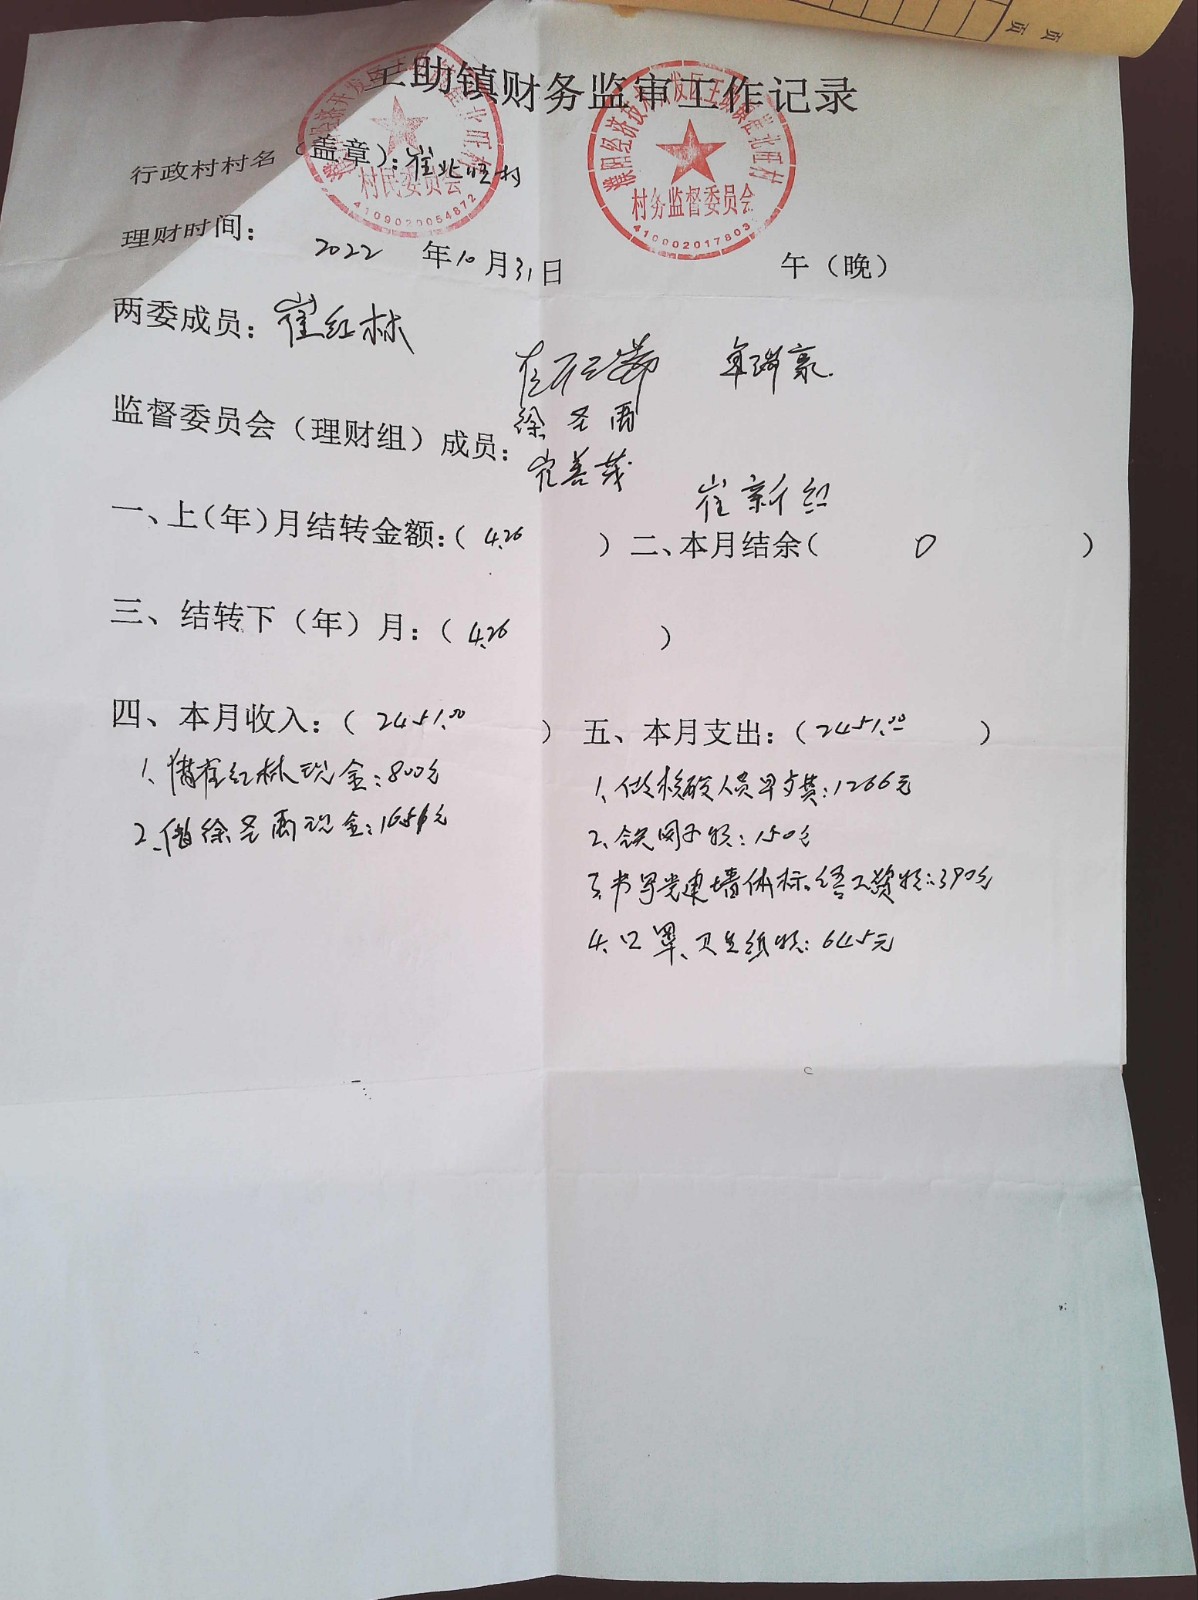 王助镇财务监审工作记录
行政村村名（盖章）：崔北旺村
村民委员会
4109020054872
村务监督委员会
理财时间： 2022 年10月31日 午（晚）
两委成员：崔红林
监督委员会（理财组）成员：
徐圣雨
崔善茂 崔新红
一、上（年）月结转金额：（ 4.26 ） 二、本月结余（ 0 ）
三、结转下（年）月：（ 4.26 ）
四、本月收入：（ 2451.00 ） 五、本月支出：（ 2451.00 ）
1、借崔红林现金：800元
2、借徐圣雨现金：1651元
1、做核酸人员早餐：1266元
2、铁网子款：150元
3、书写党建墙体标语工资款：390元
4、口罩、卫生纸款：645元
页 页